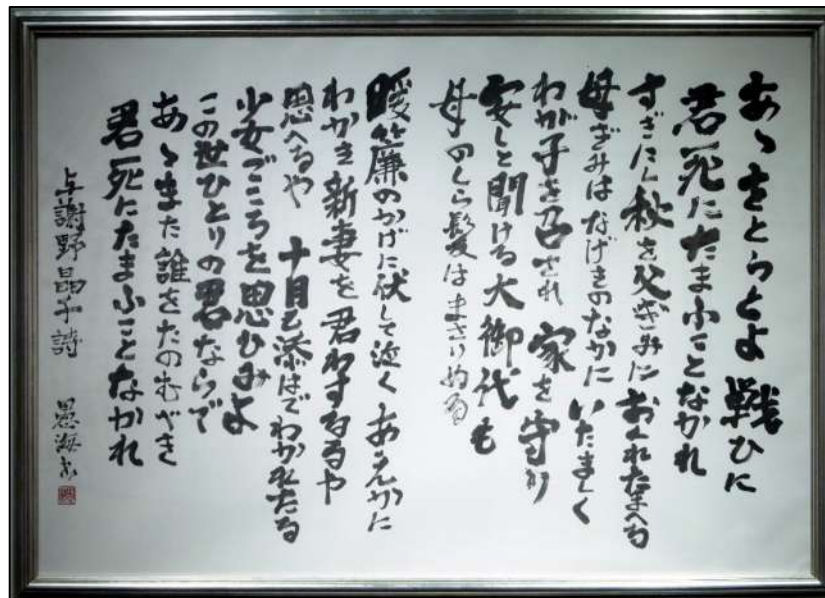 あゝをとうとよ 戦ひに
君死にたまふことなかれ
すぎにし秋を父ぎみに おくれたまへる
母ぎみはなげきのなかに いたましく
わが子を召され 家を守り
安しと聞ける大御代も
母のしら髪はまさりぬる
暖簾のかげに伏して泣く あえかに
わかき新妻を君わするるや
思へるや 十月も添はでわかれたる
少女ごころを思ひみよ
この世ひとりの君ならで
あゝまた誰をたのむべき
君死にたまふことなかれ
与謝野晶子詩 愚海書